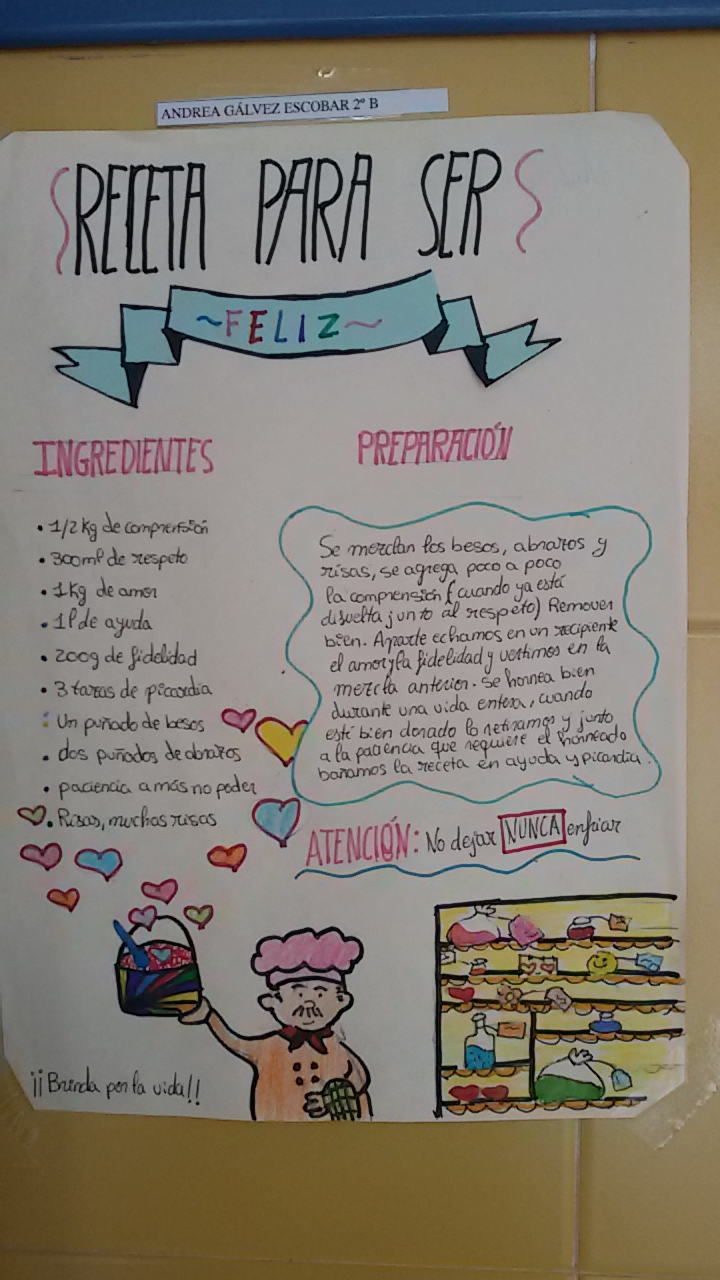 ANDREA GÁLVEZ ESCOBAR 2º B
RECETA PARA SER
~FELIZ~
INGREDIENTES
• 1/2 kg de comprensión
• 300ml de respeto
• 1kg de amor
• 1l de ayuda
• 200g de fidelidad
• 3 tazas de picardía
• Un puñado de besos
• dos puñados de abrazos
• paciencia a más no poder
• Risas, muchas risas
PREPARACIÓN
Se mezclan los besos, abrazos y
risas, se agrega poco a poco
la comprensión (cuando ya está
disuelta junto al respeto) Remover
bien. Aparte echamos en un recipiente
el amor y la fidelidad y vertimos en la
mezcla anterior. Se hornea bien
durante una vida entera, cuando
esté bien dorado lo retiramos y junto
a la paciencia que requiere el horneado
bañamos la receta en ayuda y picardia.
ATENCIÓN: No dejar NUNCA enfriar
¡¡Brinda por la vida!!